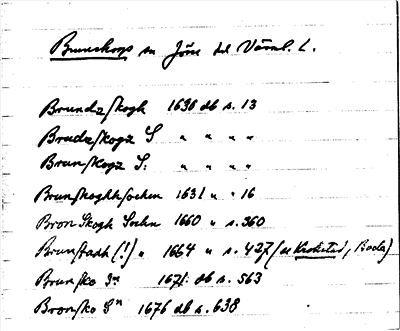 Brunskogs sn Jösse hd Värml. L.
Brundzskogh 1630 db s. 13
Brudzskogz S " " " "
Brunskogz S: " " " "
Brunskoghsochen 1631 " " 16
Bron Skogh Sochn 1660 " s. 360
Brunstadh (!) " 1664 " s. 427 (, Boda)
Brunsko Sn 1671 db s. 563
Bronsko Sn 1676 db s. 638